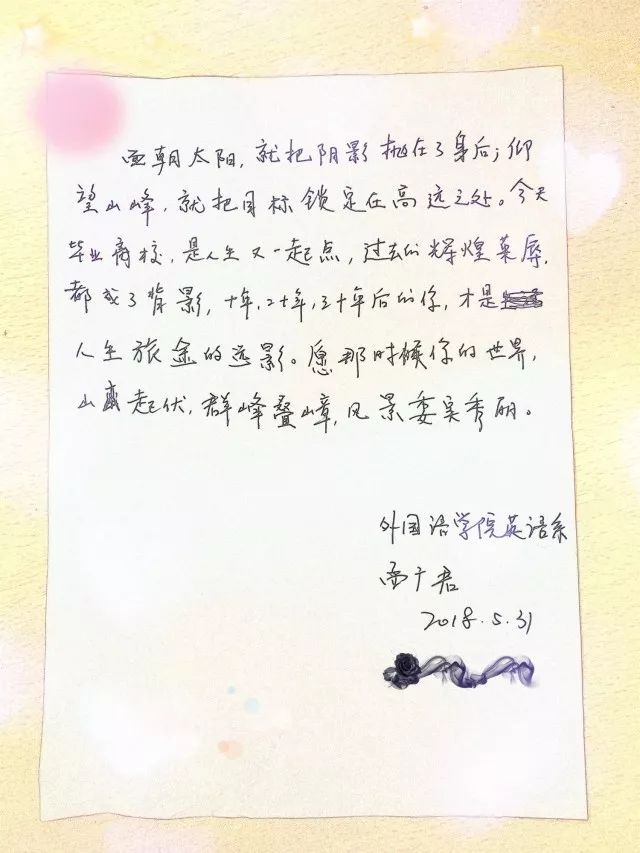 面朝太阳，就把阴影抛在了身后；仰
望山峰，就把目标锁定在高远之处。今天
毕业离校，是人生又一起点，过去的辉煌荣辱，
都成了背影，十年，二十年，三十年后的你，才是
人生旅途的远影。愿那时候你的世界，
山峦起伏，群峰叠嶂，风景委实秀丽。
外国语学院英语系
君
2018.5.31